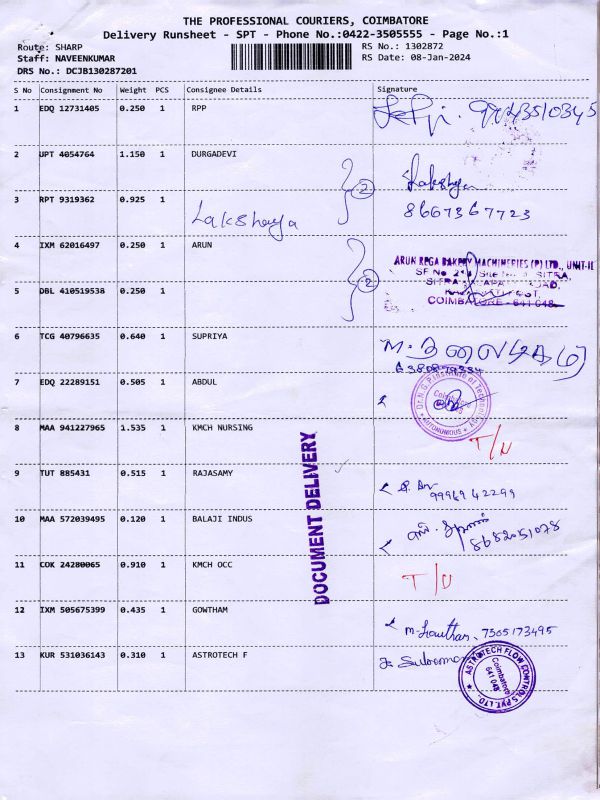 THE PROFESSIONAL COURIERS, COIMBATORE
Delivery Runsheet - SPT - Phone No.:0422-3505555 - Page No.:1
Route: SHARP
RS No.: 1302872
Staff: NAVEENKUMAR
RS Date: 08-Jan-2024
DRS No.: DCJB130287201
S No Consignment No Weight PCS Consignee Details Signature
1 EDQ 12731405 0.250 1 RPP
2 UPT 4054764 1.150 1 DURGADEVI
2
3 RPT 9319362 0.925 1
8667367723
Lakshaya
4 IXM 62016497 0.250 1 ARUN
ARUN REGA BAKERY MACHINERIES (P) LTD., UNIT-II
2
5 DBL 410519538 0.250 1
COIMBATORE - 641 048
6 TCG 40796635 0.640 1 SUPRIYA
7 EDQ 22289151 0.505 1 ABDUL
Dr. N.G.P. Institute of Technology
Coimbatore
AUTONOMOUS
8 MAA 941227965 1.535 1 KMCH NURSING
DOCUMENT DELIVERY
9 TUT 885431 0.515 1 RAJASAMY
99969 42299
10 MAA 572039495 0.120 1 BALAJI INDUS
8682051078
11 COK 24280065 0.910 1 KMCH OCC
12 IXM 505675399 0.435 1 GOWTHAM
7305173495
13 KUR 531036143 0.310 1 ASTROTECH F
ASTROTECH FLOW CONTROLS PVT. LTD.
Coimbatore
641 048